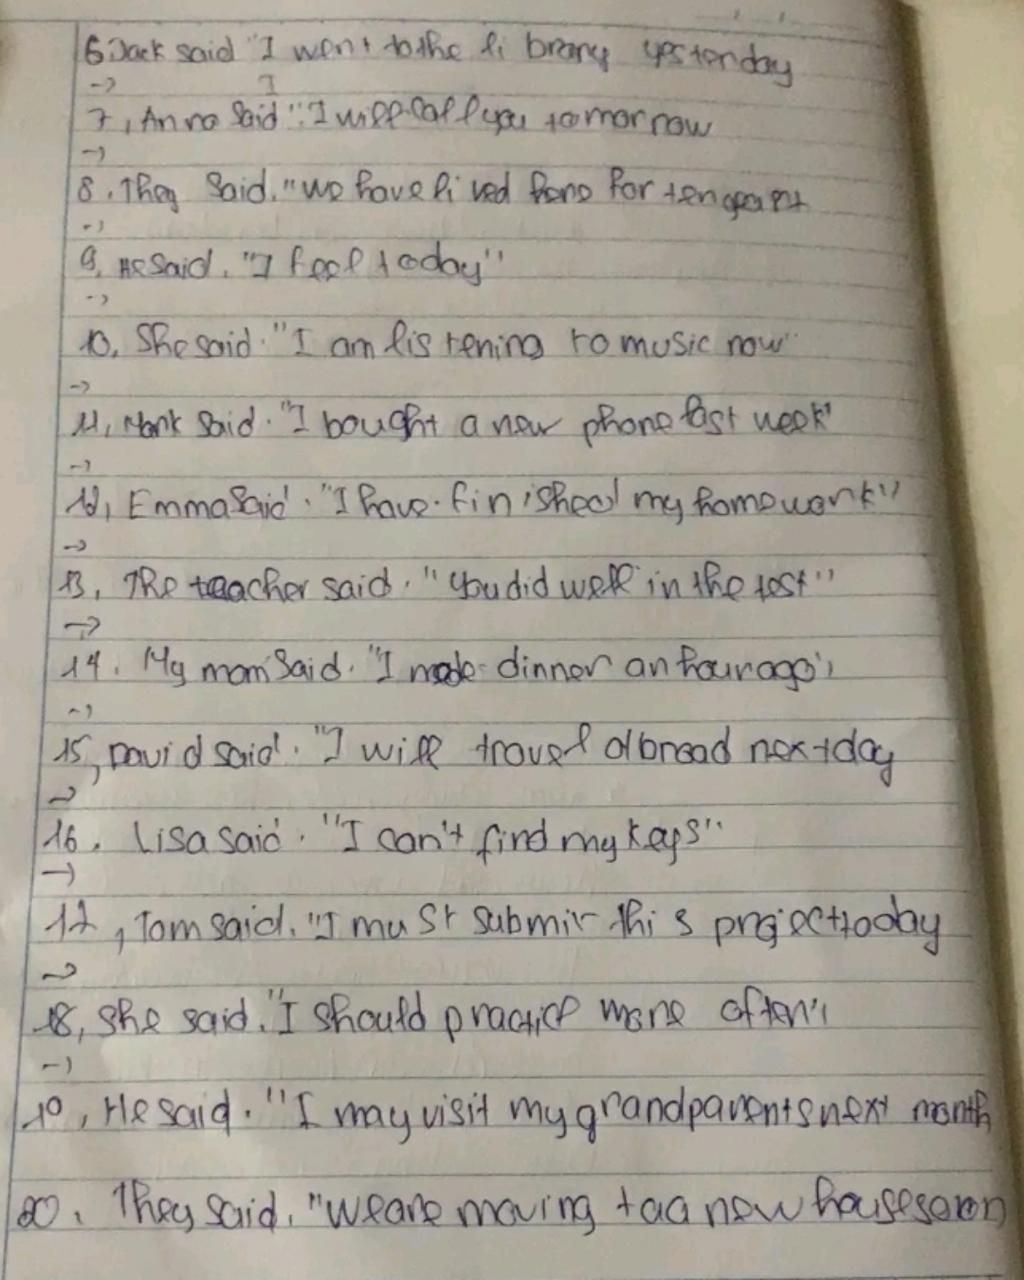 6. Jack said "I went to the li brary yesterday
->
7, Anna said "I will call you tomorrow
->
8. They said. "we have li ved here for ten years
->
9, He said. "I feel today"
->
10, She said. "I am lis tening to music now"
->
11, Mark said. "I bought a new phone last week"
->
12, Emma said. "I have finished my homework"
->
13, The teacher said. "You did well in the test"
->
14. My mom said. "I made dinner an hour ago"
->
15, David said. "I will travel abroad next day
->
16. Lisa said. "I can't find my keys"
->
17, Tom said. "I must submit this project today
->
18, she said. "I should practice more often"
->
19, He said. "I may visit my grandparents next month
20. They said. "we are moving to a new house soon